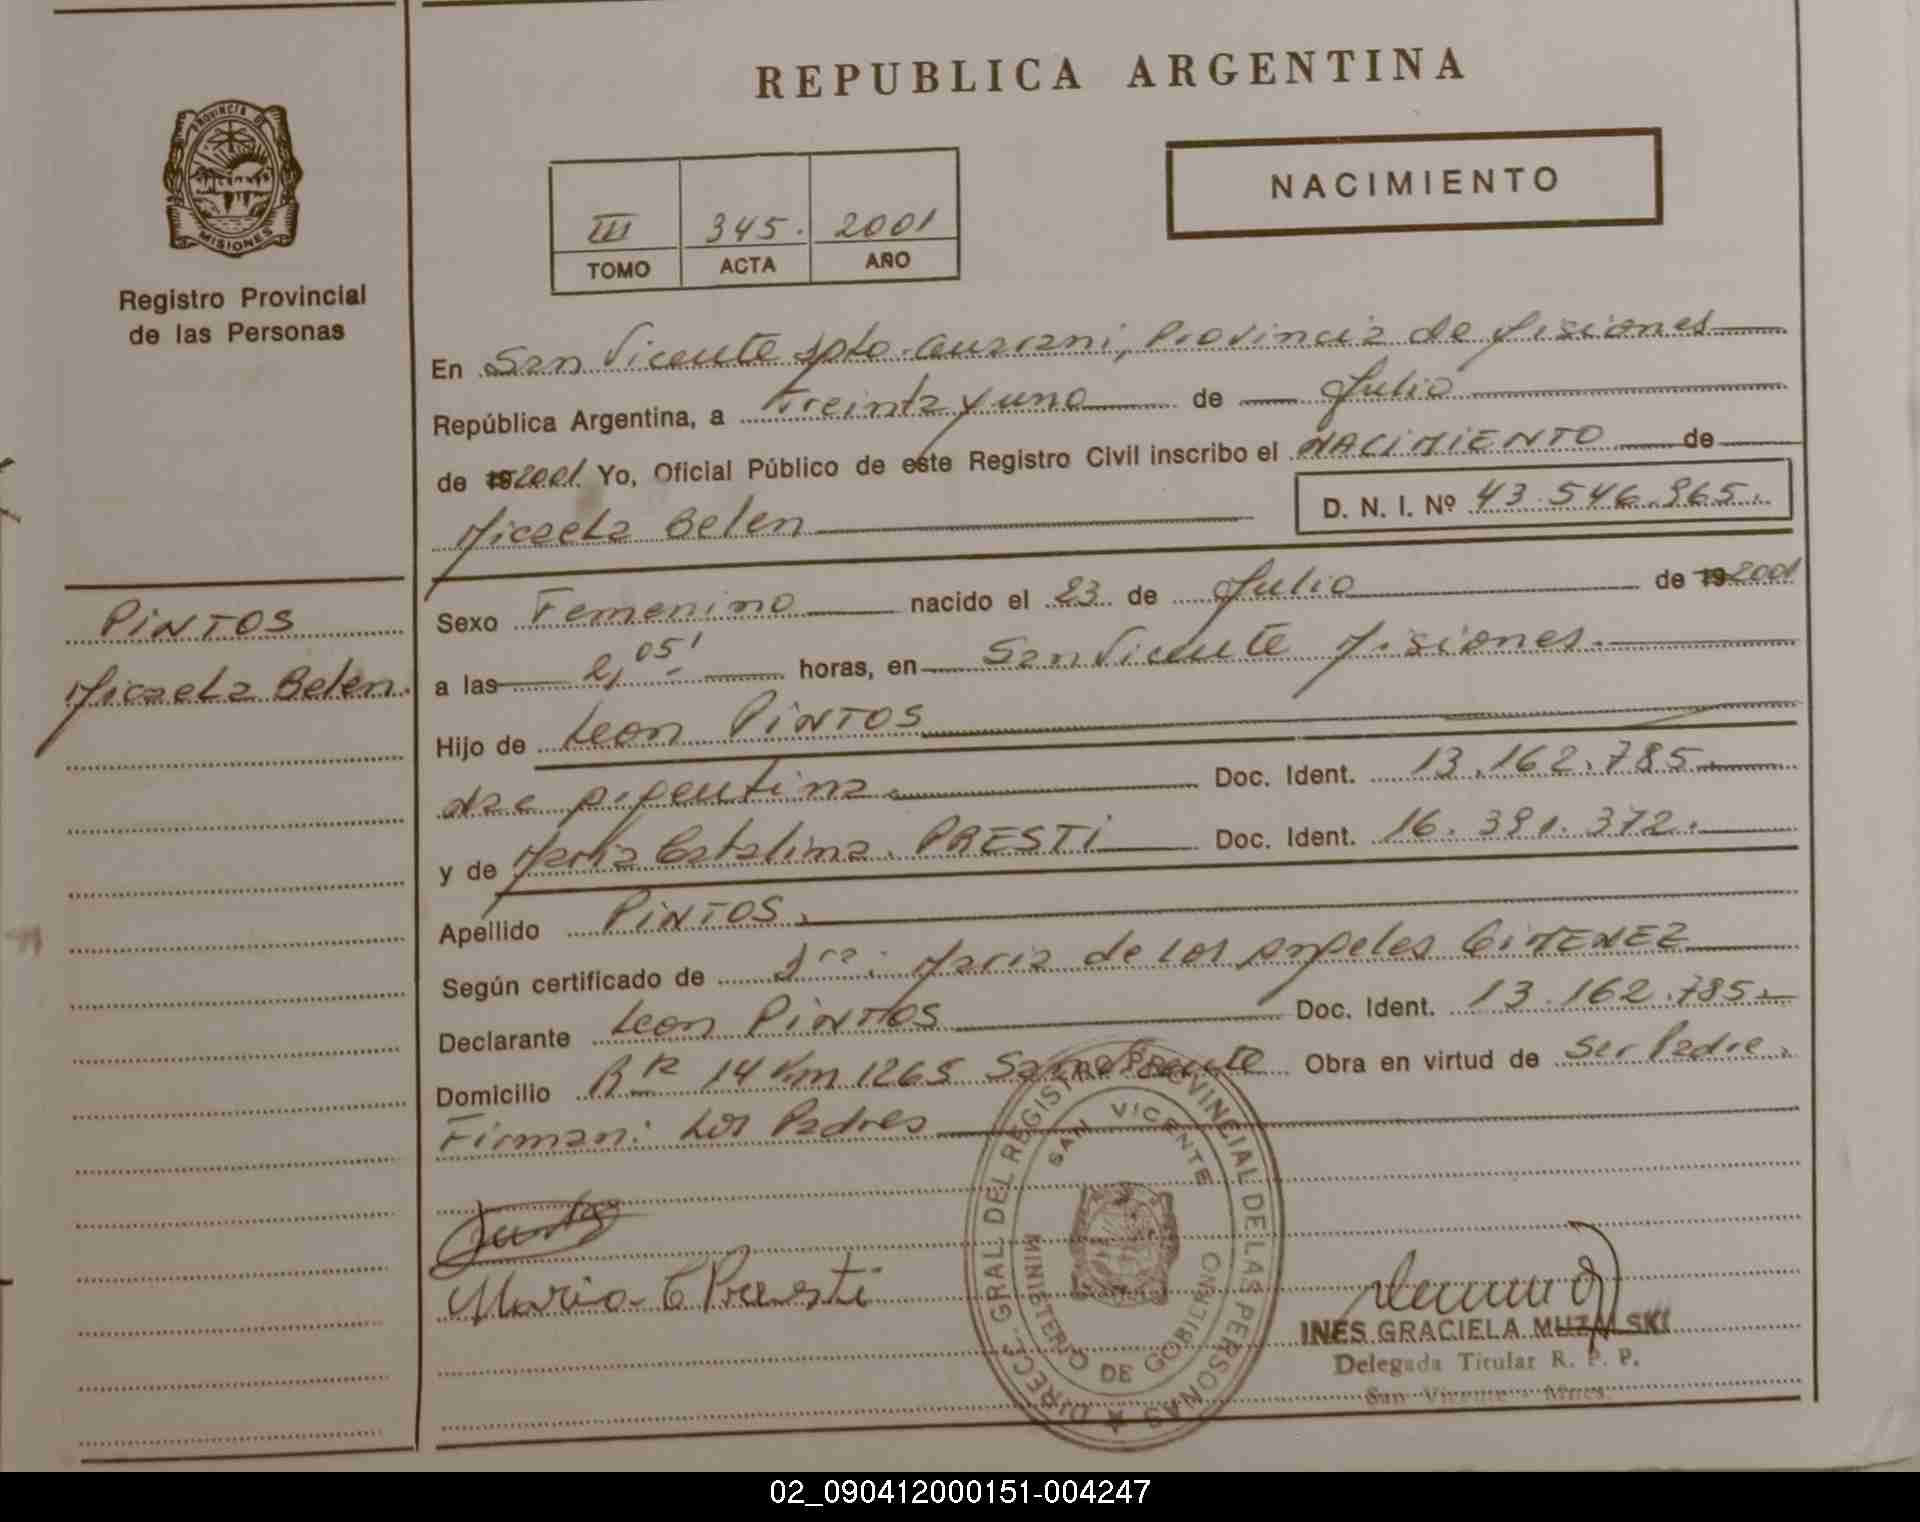 REPUBLICA ARGENTINA
PROVINCIA DE
MISIONES
Registro Provincial
de las Personas
NACIMIENTO
III 345. 2001
TOMO ACTA AÑO
En San Vicente Dpto. Guarani, Provincia de Misiones
República Argentina, a Treinta y uno de Julio
de 19 2001 Yo, Oficial Público de este Registro Civil inscribo el NACIMIENTO de
Micaela Belen D. N. I. Nº 43.546.965.
PINTOS
Micaela Belen.
Sexo Femenino nacido el 23 de Julio de 19 2001
a las 2,05' horas, en San Vicente Misiones.
Hijo de Leon PINTOS
Nac Argentina. Doc. Ident. 13.162.785.
y de Maria Catalina. PRESTI Doc. Ident. 16.391.372.
Apellido PINTOS.
Según certificado de Dra. Maria de los Angeles GIMENEZ
Declarante Leon PINTOS Doc. Ident. 13.162.785.
Domicilio R 14 Km 1265 San Vicente Obra en virtud de Ser Padre.
Firman: Los Padres
Maria C Presti
DIRECC. GRAL DEL REGISTRO PROVINCIAL DE LAS PERSONAS
SAN VICENTE
MINISTERIO DE GOBIERNO
INES GRACIELA
Delegada Titular R. P. P.
San Vicente - Mnes.
02_090412000151-004247